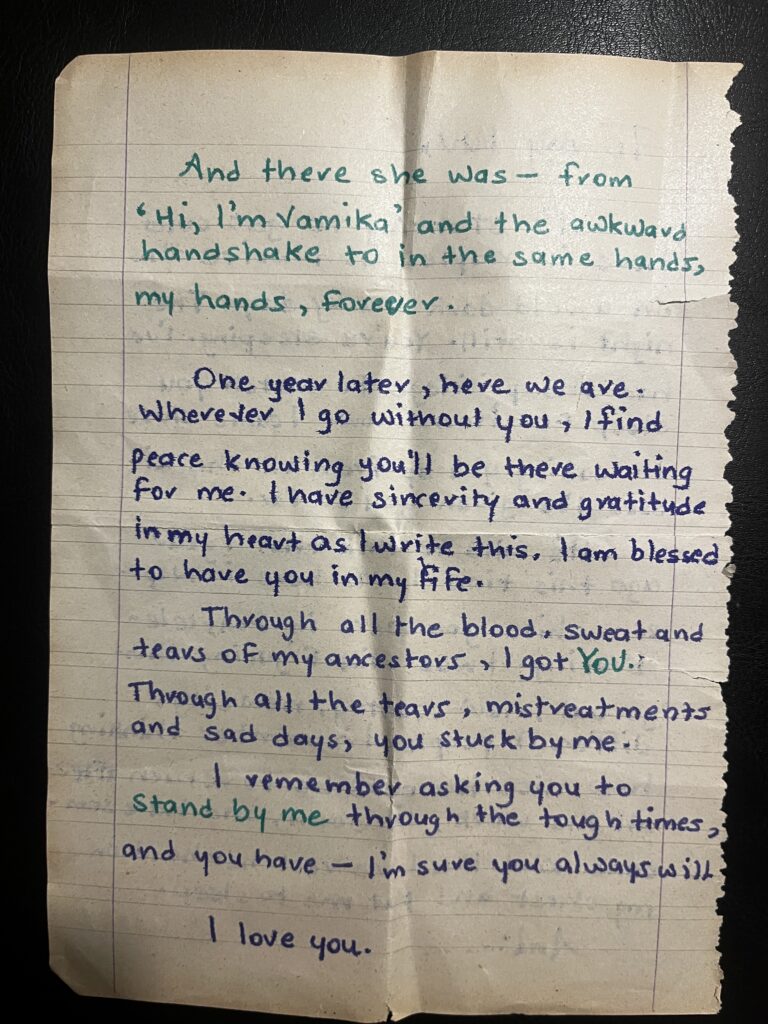 And there she was – from
'Hi, I'm Vamika' and the awkward
handshake to in the same hands,
my hands, forever.
One year later, here we are.
Wherever I go without you, I find
peace knowing you'll be there waiting
for me. I have sincerity and gratitude
in my heart as I write this. I am blessed
to have you in my life.
Through all the blood, sweat and
tears of my ancestors, I got You.
Through all the tears, mistreatments
and sad days, you stuck by me.
I remember asking you to
stand by me through the tough times,
and you have – I'm sure you always will.
I love you.